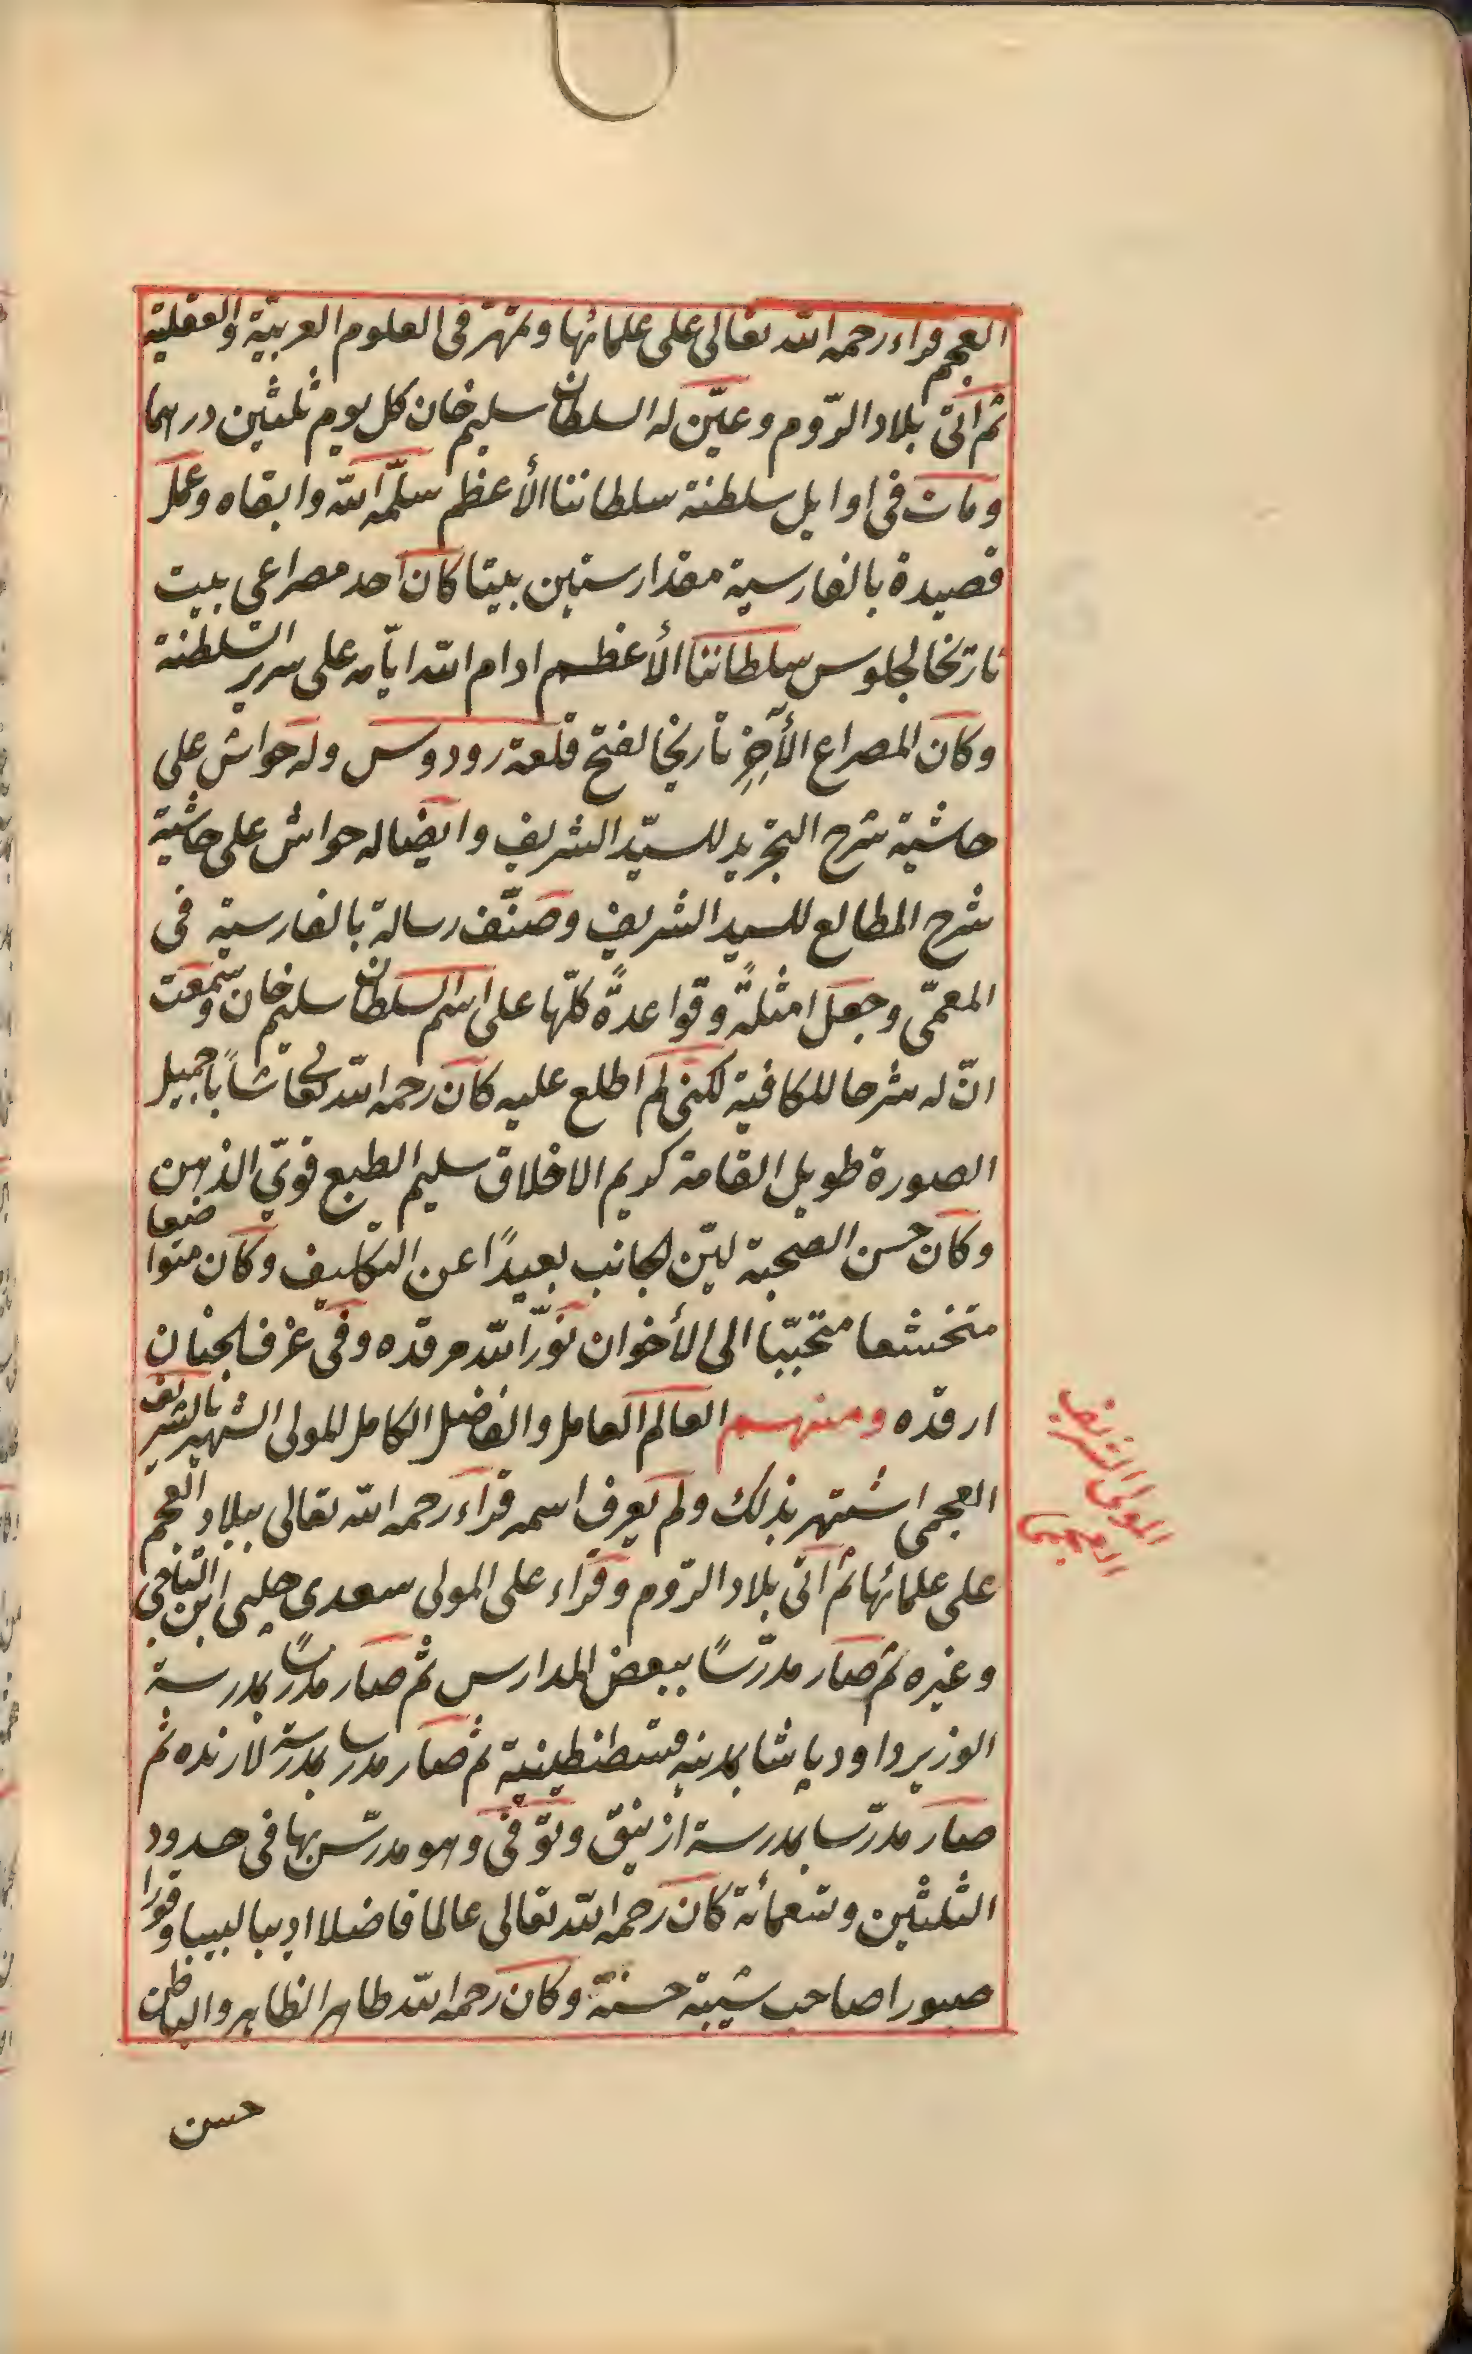 العجم قراء رحمه الله تعالى على علمائها وتمهّر فى العلوم العربيّة والعقلية
ثم اتى بلاد الرّوم وعيّن له السلطان سليم خان كل يوم ثلثين درهما
ومات فى اوايل سلطنة سلطاننا الأعظم سلّمه الله وابقاه وعمل
قصيدة بالفارسية مقدار ستين بيتا كان احد مصراعى بيت
تاريخا لجلوس سلطاننا الأعظم ادام الله ايّامه على سرير السّلطنة
وكان المصراع الأخِر تاريخا لفتح قلعة رودوس وله حواش على
حاشية شرح التجريد للسيّد الشريف وايضا له حواش على حاشية
شرح المطالع للسيد الشريف وصنّف رسالة بالفارسية فى
المعمّى وجعل امثلةً وقواعدةً كلّها على اسم السلطان سليم خان وسمعت
انّ له شرحا للكافية لكنى لم اطلع عليه كان رحمه الله تعالى شاباً جميل
الصورة طويل القامة كريم الاخلاق سليم الطبع قوىّ الذهن
وكان حسن الصحبة ليّن الجانب بعيدًا عن التكليف وكان متواضعا
متخشعا متحبّبا الى الأخوان نوّر الله مرقده وفى غرف الجنان
ارقده ومنهم العالم العامل والفاضل الكامل المولى الشهير بالشريف
العجمى اشتهر بذلك ولم يعرف اسمه قراء رحمه الله تعالى ببلاد العجم
على علمائها ثم اتى بلاد الرّوم وقراء على المولى سعدى چلبى ابن التاجى
وغيره ثم صار مدرّسًا ببعض المدارس ثم صار مدرسًا بمدرسة
الوزير داود پاشا بمدينه قسطنطينية ثم صار مدرسا بمدرسة لارنده ثم
صار مدرّسا بمدرسة ازنيق وتوّفى وهو مدرّس بها فى حدود
الثلثين وتسعمائة كان رحمه الله تعالى عالما فاضلا اديبا لبيبا وقورا
صبورا صاحب شيبة حسنة وكان رحمه الله طاهر الظاهر والباطن
حسن
المولى الشريف
العجمى